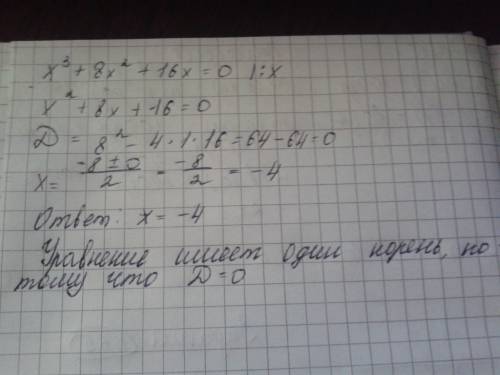 x³ + 8x² + 16x = 0 |:x
x² + 8x + 16 = 0
D = 8² - 4 · 1 · 16 = 64 - 64 = 0
x = (-8 ± 0)/2 = -8/2 = -4
Ответ: x = -4
Уравнение имеет один корень, по
тому что D = 0